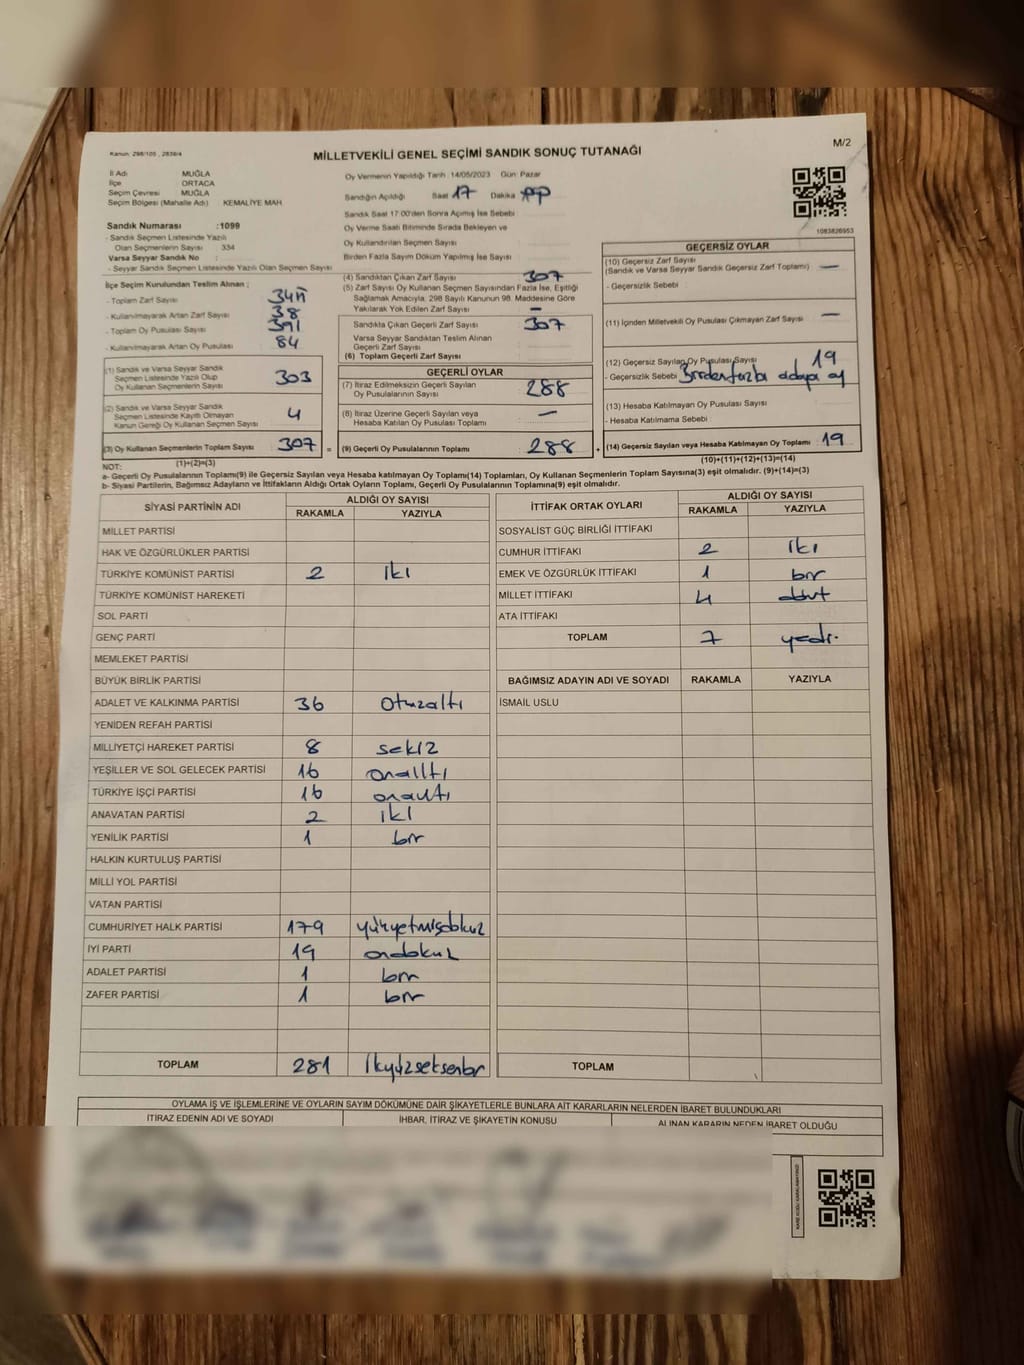 M/2
Kanun: 298/105 , 2839/4
MİLLETVEKİLİ GENEL SEÇİMİ SANDIK SONUÇ TUTANAĞI
İl Adı MUĞLA
İlçe ORTACA
Seçim Çevresi MUĞLA
Seçim Bölgesi (Mahalle Adı) KEMALİYE MAH
Sandık Numarası :1099
- Sandık Seçmen Listesinde Yazılı
Olan Seçmenlerin Sayısı : 334
Varsa Seyyar Sandık No :
- Seyyar Sandık Seçmen Listesinde Yazılı Olan Seçmen Sayısı
İlçe Seçim Kurulundan Teslim Alınan ;
- Toplam Zarf Sayısı
- Kullanılmayarak Artan Zarf Sayısı : 38
- Toplam Oy Pusulası Sayısı : 391
- Kullanılmayarak Artan Oy Pusulası 84
(1) Sandık ve Varsa Seyyar Sandık
Seçmen Listesinde Yazılı Olup
Oy Kullanan Seçmenlerin Sayısı 303
(2) Sandık ve Varsa Seyyar Sandık
Seçmen Listesinde Kayıtlı Olmayan
Kanun Gereği Oy Kullanan Seçmenlerin Sayısı 4
(3) Oy Kullanan Seçmenlerin Toplam Sayısı 307 =
(1)+(2)=(3)
Oy Vermenin Yapıldığı Tarih :14/05/2023 Gün: Pazar
Sandığın Açıldığı Saat 17 Dakika
Sandık Saat 17:00'den Sonra Açılmış İse Sebebi
Oy Verme Saati Bitiminde Sırada Bekleyen ve
Oy Kullandırılan Seçmen Sayısı
Birden Fazla Sayım Döküm Yapılmış İse Sayısı
(4) Sandıktan Çıkan Zarf Sayısı 307
(5) Zarf Sayısı Oy Kullanan Seçmen Sayısından Fazla İse, Eşitliği
Sağlamak Amacıyla, 298 Sayılı Kanunun 98. Maddesine Göre
Yakılarak Yok Edilen Zarf Sayısı –
Sandıkta Çıkan Geçerli Zarf Sayısı 307
Varsa Seyyar Sandıktan Teslim Alınan
Geçerli Zarf Sayısı
(6) Toplam Geçerli Zarf Sayısı
GEÇERLİ OYLAR
(7) İtiraz Edilmeksizin Geçerli Sayılan
Oy Pusulasının Sayısı 288
(8) İtiraz Üzerine Geçerli Sayılan veya
Hesaba Katılan Oy Pusulası Toplamı –
(9) Geçerli Oy Pusulalarının Toplamı 288 +
1083826953
GEÇERSİZ OYLAR
(10) Geçersiz Zarf Sayısı
(Sandık ve Varsa Seyyar Sandık Geçersiz Zarf Toplamı) –
- Geçersizlik Sebebi
(11) İçinden Milletvekili Oy Pusulası Çıkmayan Zarf Sayısı –
(12) Geçersiz Sayılan Oy Pusulası Sayısı 19
- Geçersizlik Sebebi Birdenfazla adaya oy
(13) Hesaba Katılmayan Oy Pusulası Sayısı
- Hesaba Katılmama Sebebi :
(14) Geçersiz Sayılan veya Hesaba Katılmayan Oy Toplamı : 19
(10)+(11)+(12)+(13)=(14)
NOT:
a- Geçerli Oy Pusulalarının Toplamı(9) ile Geçersiz Sayılan veya Hesaba katılmayan Oy Toplamı(14) Toplamları, Oy Kullanan Seçmenlerin Toplam Sayısına(3) eşit olmalıdır. (9)+(14)=(3)
b- Siyasi Partilerin, Bağımsız Adayların ve İttifakların Aldığı Ortak Oyların Toplamı, Geçerli Oy Pusulalarının Toplamına(9) eşit olmalıdır.
SİYASİ PARTİNİN ADI ALDIĞI OY SAYISI
RAKAMLA YAZIYLA
MİLLET PARTİSİ
HAK VE ÖZGÜRLÜKLER PARTİSİ
TÜRKİYE KOMÜNİST PARTİSİ 2 iki
TÜRKİYE KOMÜNİST HAREKETİ
SOL PARTİ
GENÇ PARTİ
MEMLEKET PARTİSİ
BÜYÜK BİRLİK PARTİSİ
ADALET VE KALKINMA PARTİSİ 36 otuzaltı
YENİDEN REFAH PARTİSİ
MİLLİYETÇİ HAREKET PARTİSİ 8 sekiz
YEŞİLLER VE SOL GELECEK PARTİSİ 16 onalltı
TÜRKİYE İŞÇİ PARTİSİ 16 onaltı
ANAVATAN PARTİSİ 2 iki
YENİLİK PARTİSİ 1 bir
HALKIN KURTULUŞ PARTİSİ
MİLLİ YOL PARTİSİ
VATAN PARTİSİ
CUMHURİYET HALK PARTİSİ 179 yüzyetmişdokuz
İYİ PARTİ 19 ondokuz
ADALET PARTİSİ 1 bir
ZAFER PARTİSİ 1 bir
TOPLAM 281 ikiyüzseksenbir
İTTİFAK ORTAK OYLARI ALDIĞI OY SAYISI
RAKAMLA YAZIYLA
SOSYALİST GÜÇ BİRLİĞİ İTTİFAKI
CUMHUR İTTİFAKI 2 iki
EMEK VE ÖZGÜRLÜK İTTİFAKI 1 bir
MİLLET İTTİFAKI 4 dört
ATA İTTİFAKI
TOPLAM 7 yedi.
BAĞIMSIZ ADAYIN ADI VE SOYADI RAKAMLA YAZIYLA
İSMAİL USLU
TOPLAM
OYLAMA İŞ VE İŞLEMLERİNE VE OYLARIN SAYIM DÖKÜMÜNE DAİR ŞİKAYETLERLE BUNLARA AİT KARARLARIN NELERDEN İBARET BULUNDUKLARI
İTİRAZ EDENİN ADI VE SOYADI İHBAR, İTİRAZ VE ŞİKAYETİN KONUSU ALINAN KARARIN NEDEN İBARET OLDUĞU